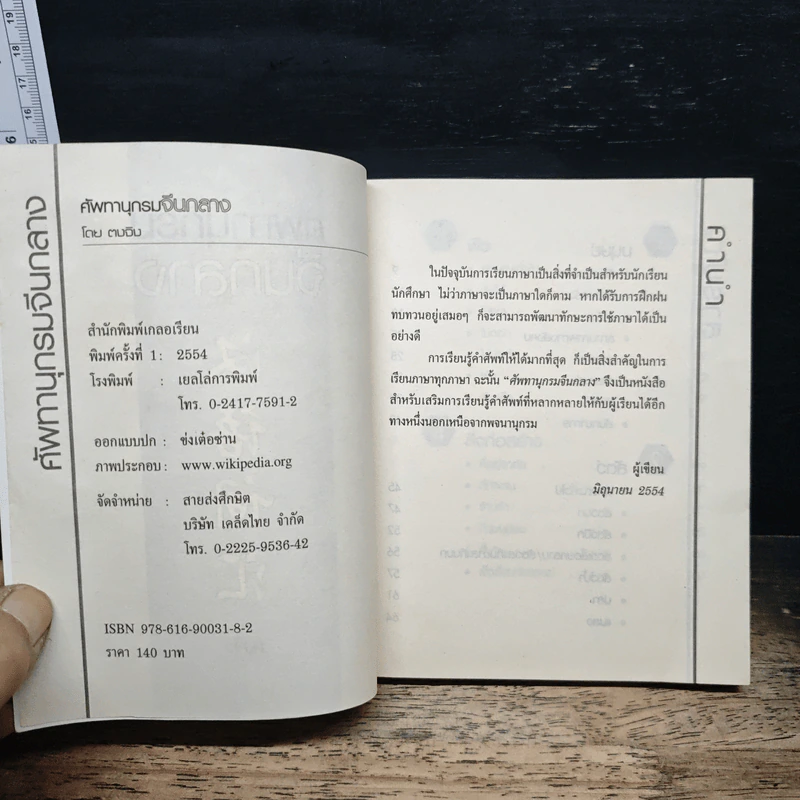 ศัพทานุกรมจีนกลาง
ศัพทานุกรมจีนกลาง
โดย ตงฉิม
สำนักพิมพ์เกลอเรียน
พิมพ์ครั้งที่ 1 : 2554
โรงพิมพ์ : เยลโล่การพิมพ์
โทร. 0-2417-7591-2
ออกแบบปก : ช่งเต๋อซ่าน
ภาพประกอบ : www.wikipedia.org
จัดจำหน่าย : สายส่งศึกษิต
บริษัท เคล็ดไทย จำกัด
โทร. 0-2225-9536-42
ISBN 978-616-90031-8-2
ราคา 140 บาท
คำนำ
ในปัจจุบันการเรียนภาษาเป็นสิ่งที่จำเป็นสำหรับนักเรียน
นักศึกษา ไม่ว่าภาษาจะเป็นภาษาใดก็ตาม หากได้รับการฝึกฝน
ทบทวนอยู่เสมอๆ ก็จะสามารถพัฒนาทักษะการใช้ภาษาได้เป็น
อย่างดี
การเรียนรู้คำศัพท์ให้ได้มากที่สุด ก็เป็นสิ่งสำคัญในการ
เรียนภาษาทุกภาษา ฉะนั้น “ศัพทานุกรมจีนกลาง” จึงเป็นหนังสือ
สำหรับเสริมการเรียนรู้คำศัพท์ที่หลากหลายให้กับผู้เรียนได้อีก
ทางหนึ่งนอกเหนือจากพจนานุกรม
ผู้เขียน
มิถุนายน 2554
19
18
17
16
6